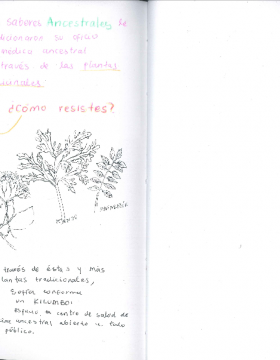 Saberes Ancestrales se
dicionaron su oficio
médico ancestral
través de las plantas
¿Cómo resistes?
través de éstas y más
lantas tradicionales,
Sofía conforma
un KILUMBOI
Espacio, en centro de salud de
ancestral abierto a todo
público.